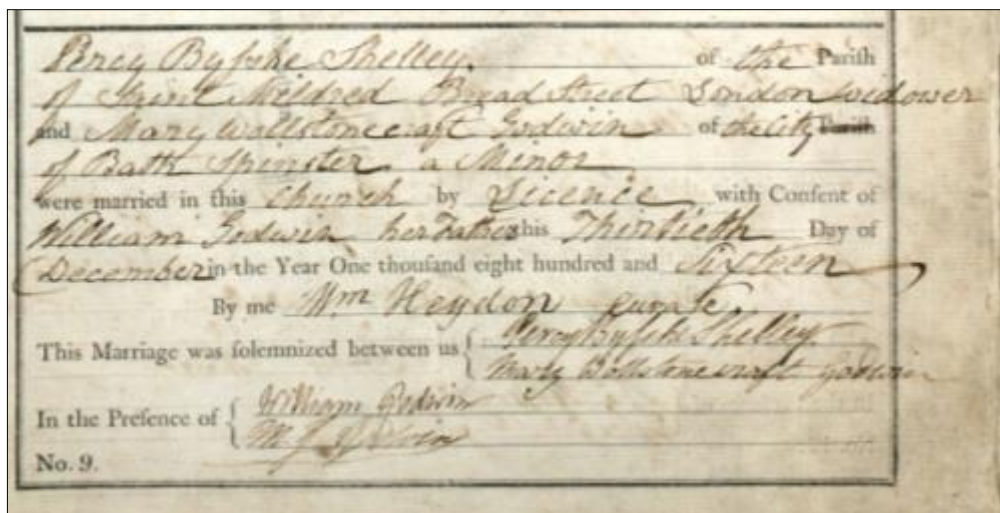 Percy Bysshe Shelley of the Parish
of Saint Mildred Bread Street London widower
and Mary Wollstonecraft Godwin of the City Parish
of Bath Spinster a Minor
were married in this Church by Licence with Consent of
William Godwin her Father this Thirtieth Day of
December in the Year One thousand eight hundred and Sixteen
By me Wm Heydon Curate
This Marriage was solemnized between us { Percy Bysshe Shelley
Mary Wollstonecraft Godwin
In the Presence of { William Godwin
M. J. Godwin
No. 9.